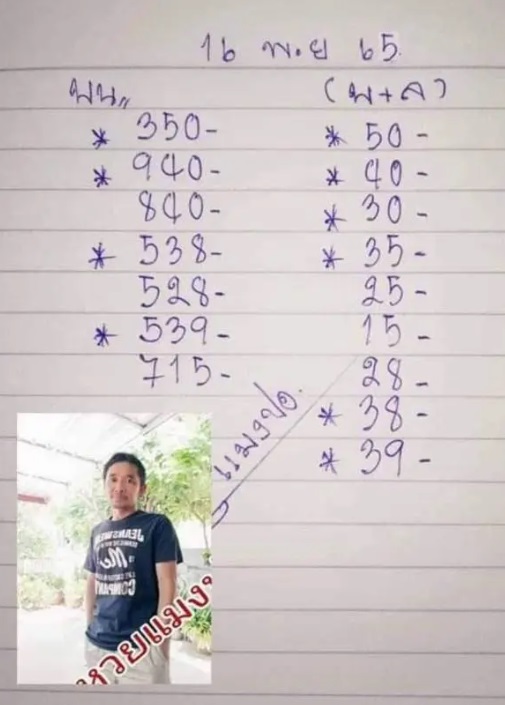 16 พ.ย 65.
บน,, (บ+ล)
* 350- * 50-
* 940- * 40-
840- * 30-
* 538- * 35-
528- 25-
* 539- 15-
715- 28-
* 38-
* 39-
แมงปอ.
JEANSWEAR
COMPANY
หวยแมงป